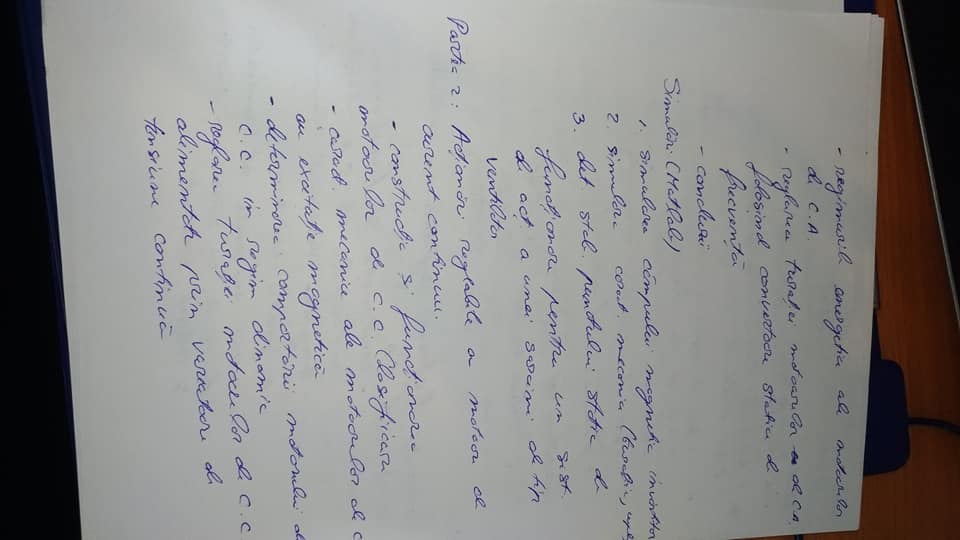 - regimurile energetice ale motoarelor
de C.A.
- reglarea turației motoarelor de C.A.
folosind convertoare statice de
frecvență
- concluzii
Simulări (Matlab)
1. Simularea câmpului magnetic învârtitor
2. simulare caract. mecanice
3. det. stab. punctului static de
funcționare pentru un sist.
de acț. a unei sarcini de tip
ventilator
Partea 2: Acționări reglabile cu motoare de
curent continuu.
- construcția și funcționarea
motoarelor de C.C. Clasificare
- caract. mecanice ale motoarelor de C
cu excitație magnetică
- determinarea comportării motorului d
C.C. în regim dinamic
- reglarea turației motoarelor de C.C.
alimentate prin variatoare de
tensiune continuă